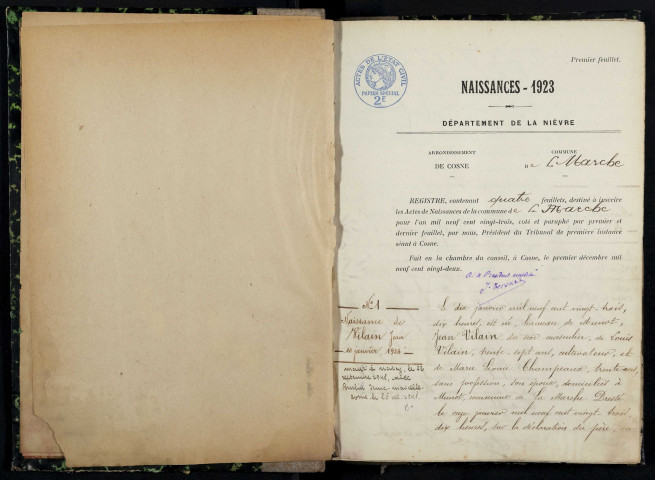 Premier feuillet.
ACTES DE L'ÉTAT CIVIL
PAPIER SPÉCIAL
2E
NAISSANCES - 1923
DÉPARTEMENT DE LA NIÈVRE
ARRONDISSEMENT
DE COSNE
COMMUNE
de La Marche
REGISTRE, contenant quatre feuillets, destiné à inscrire
les Actes de Naissances de la commune de La Marche
pour l'an mil neuf cent vingt-trois, coté et paraphé par premier et
dernier feuillet, par nous, Président du Tribunal de première instance
séant à Cosne.
Fait en la chambre du conseil, à Cosne, le premier décembre mil
neuf cent vingt-deux.
N° 1
Naissance de
Vilain Jean
10 janvier 1923
Le dix janvier mil neuf cent vingt-trois,
dix heures, est né, hameau de Munot,
Jean Vilain du sexe masculin, de Louis
Vilain, trente-sept ans, cultivateur, et
de Marie Louise Champeaux, trente ans,
sans profession, son épouse, domiciliés à
Munot, commune de La Marche. Dressé
le onze janvier mil neuf cent vingt-trois,
dix heures, sur la déclaration du père,